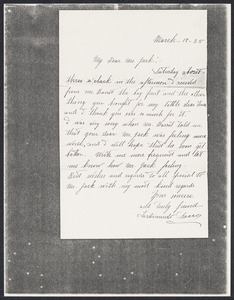 March - 19 - 35
My dear Mr. Jack:
Saturday about
three o'clock in the afternoon I received
from Mr. the big fruit and the other
thing you bought for my little
and I thank you very much for it.
I was very sorry when Mr. told me
that you dear Mr. Jack was feeling
sick, and I still hope that he soon get
better. Write me more frequent and let
me know how Mr. Jack feeling.
Best wishes and regards to all special to
Mr. Jack with my most kind regards
Your sincere
and only friend